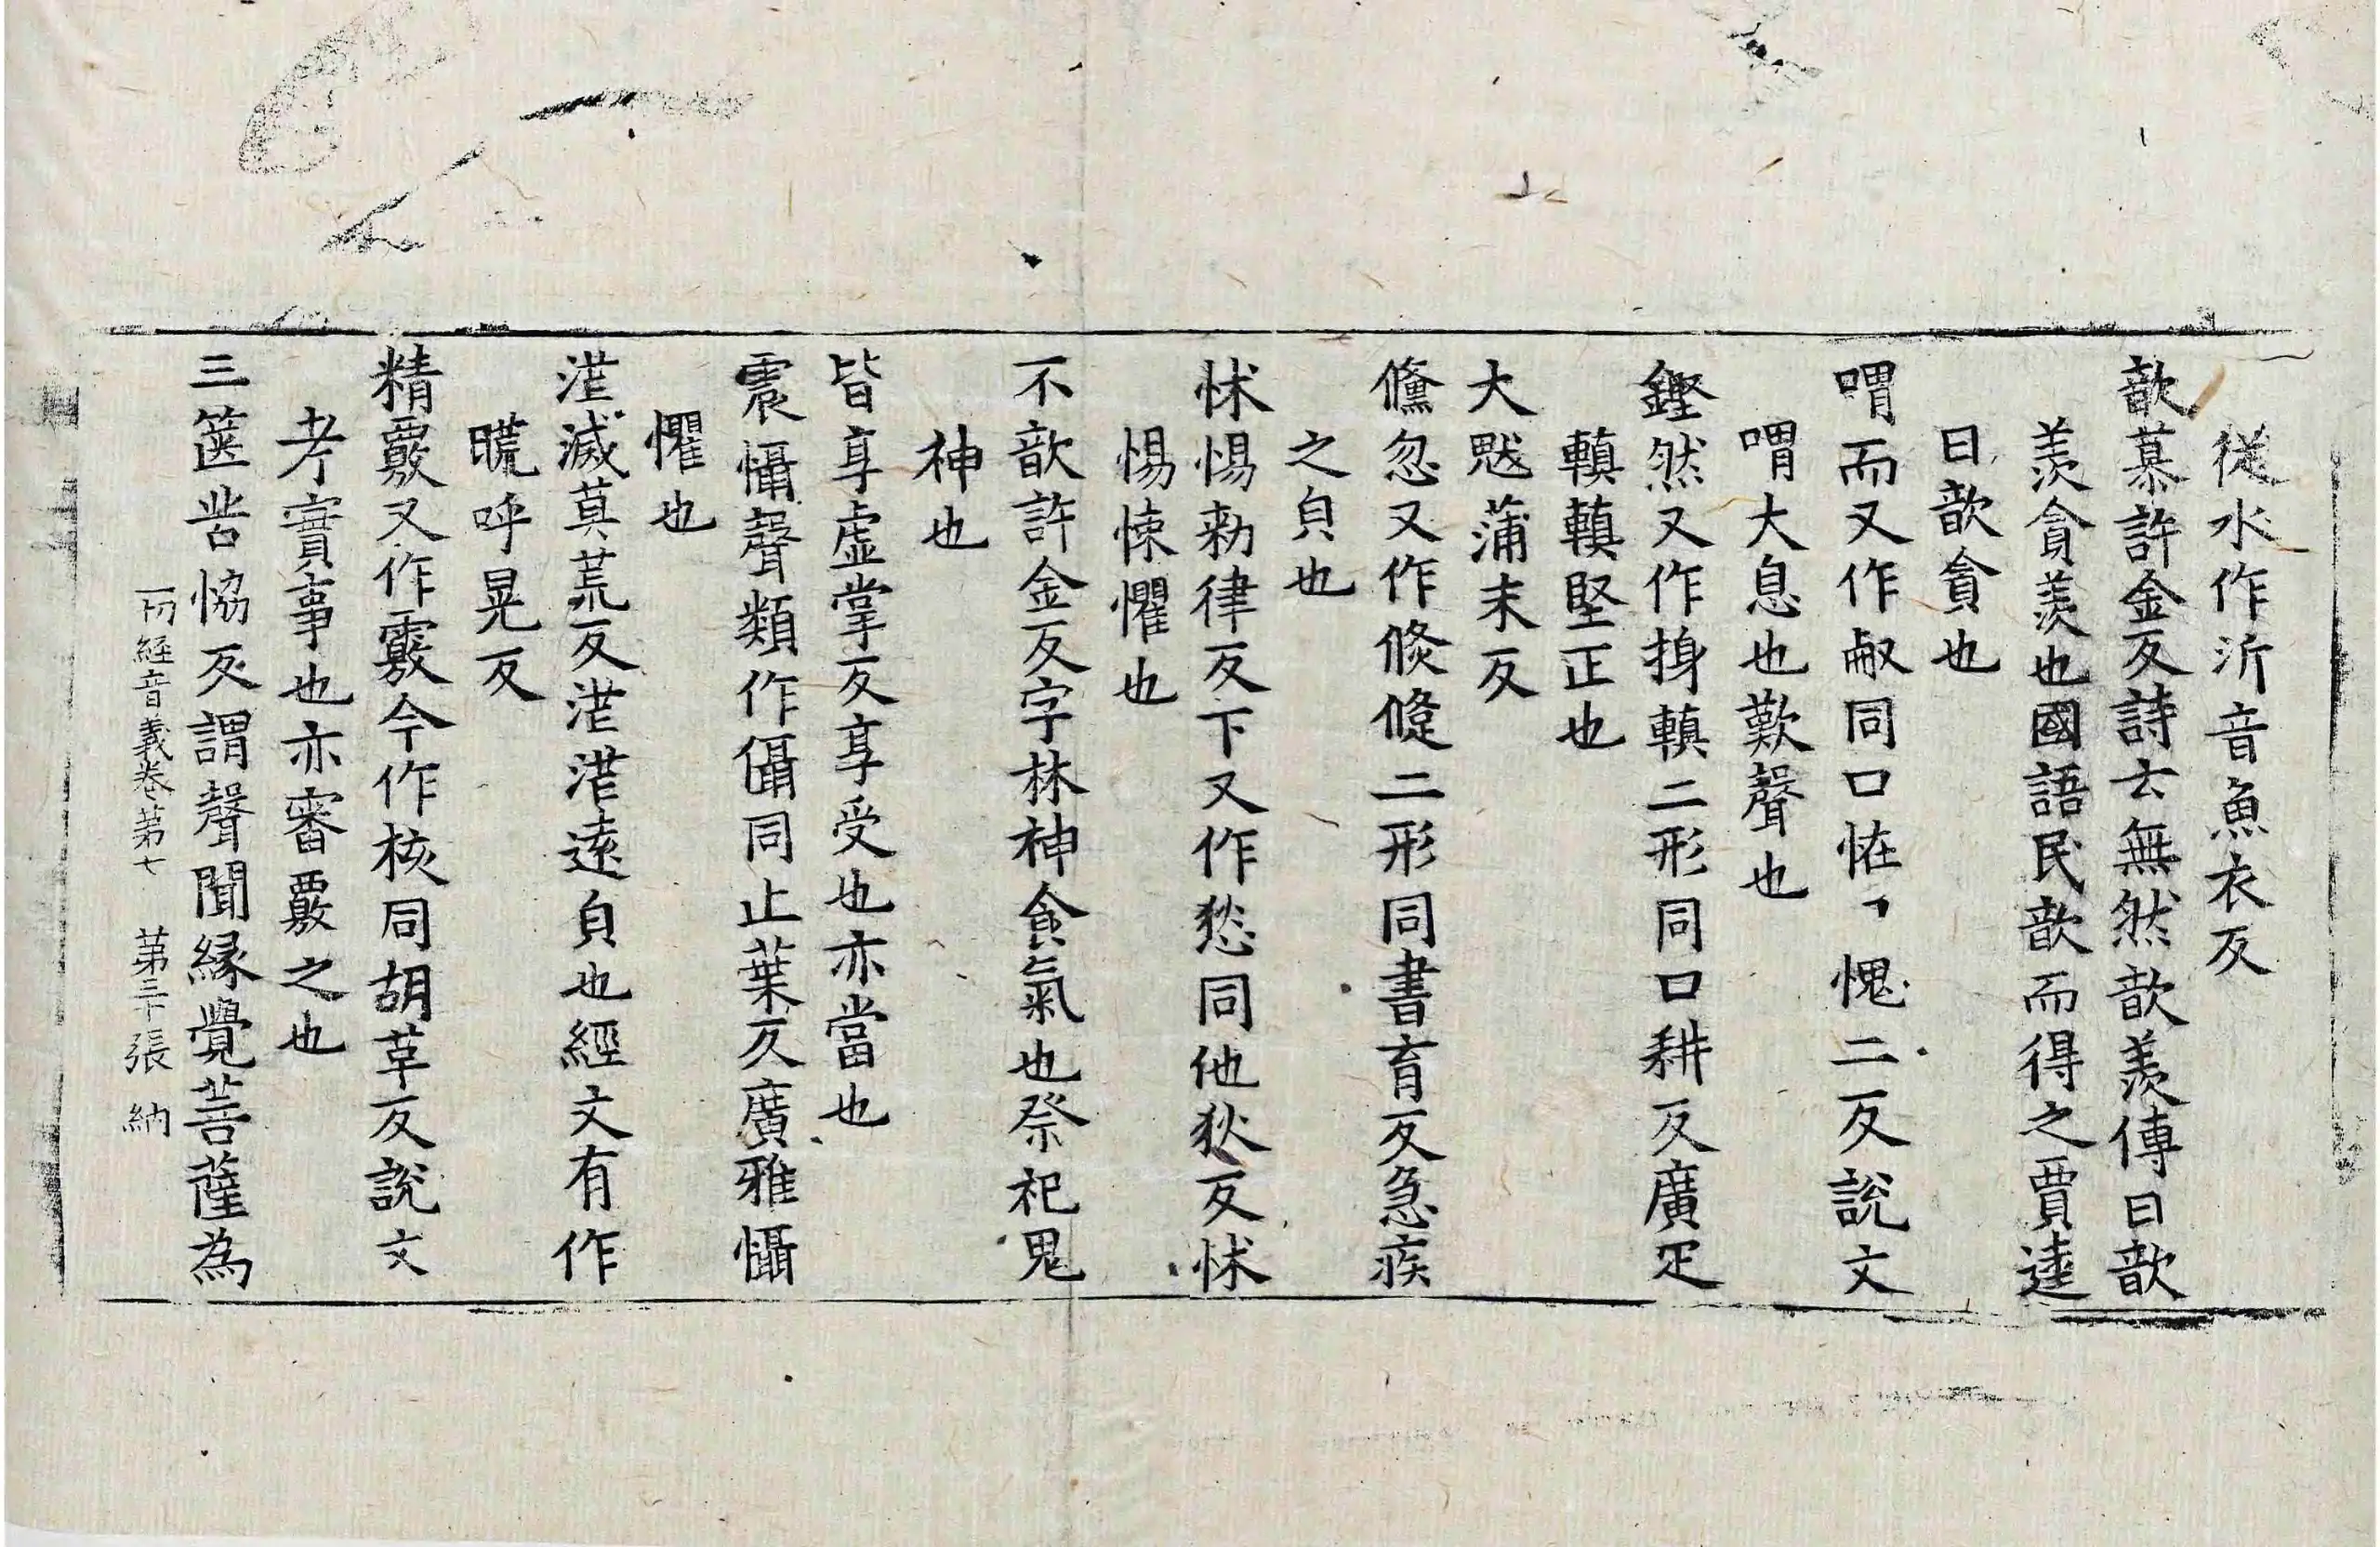 従水作沂音魚衣反
歆慕許金反詩云無然歆羨傳曰歆
羨貪羨也國語民歆而得之賈逵
曰歆貪也
喟而又作㕟同口恠丶愧二反說文
喟大息也歎聲也
鏗然又作摼䡩二形同口耕反廣疋
䡩䡩堅正也
大魃蒲末反
儵忽又作倏倐二形同書育反急疾
之㒵也
怵惕勑律反下又作愁同他狄反怵
惕悚懼也
不歆許金反字林神食氣也祭祀鬼
神也
皆享虛掌反享受也亦當也
震懾聲類作㒤同止葉反廣雅懾
懼也
漭滅莫荒反漭漭逺㒵也經文有作
㬻呼晃反
精覈又作覈今作核同胡革反說文
考實事也亦審覈之也
三箧苦恊反謂聲聞縁覺菩薩為
一切經音義卷第七 第三十張 納